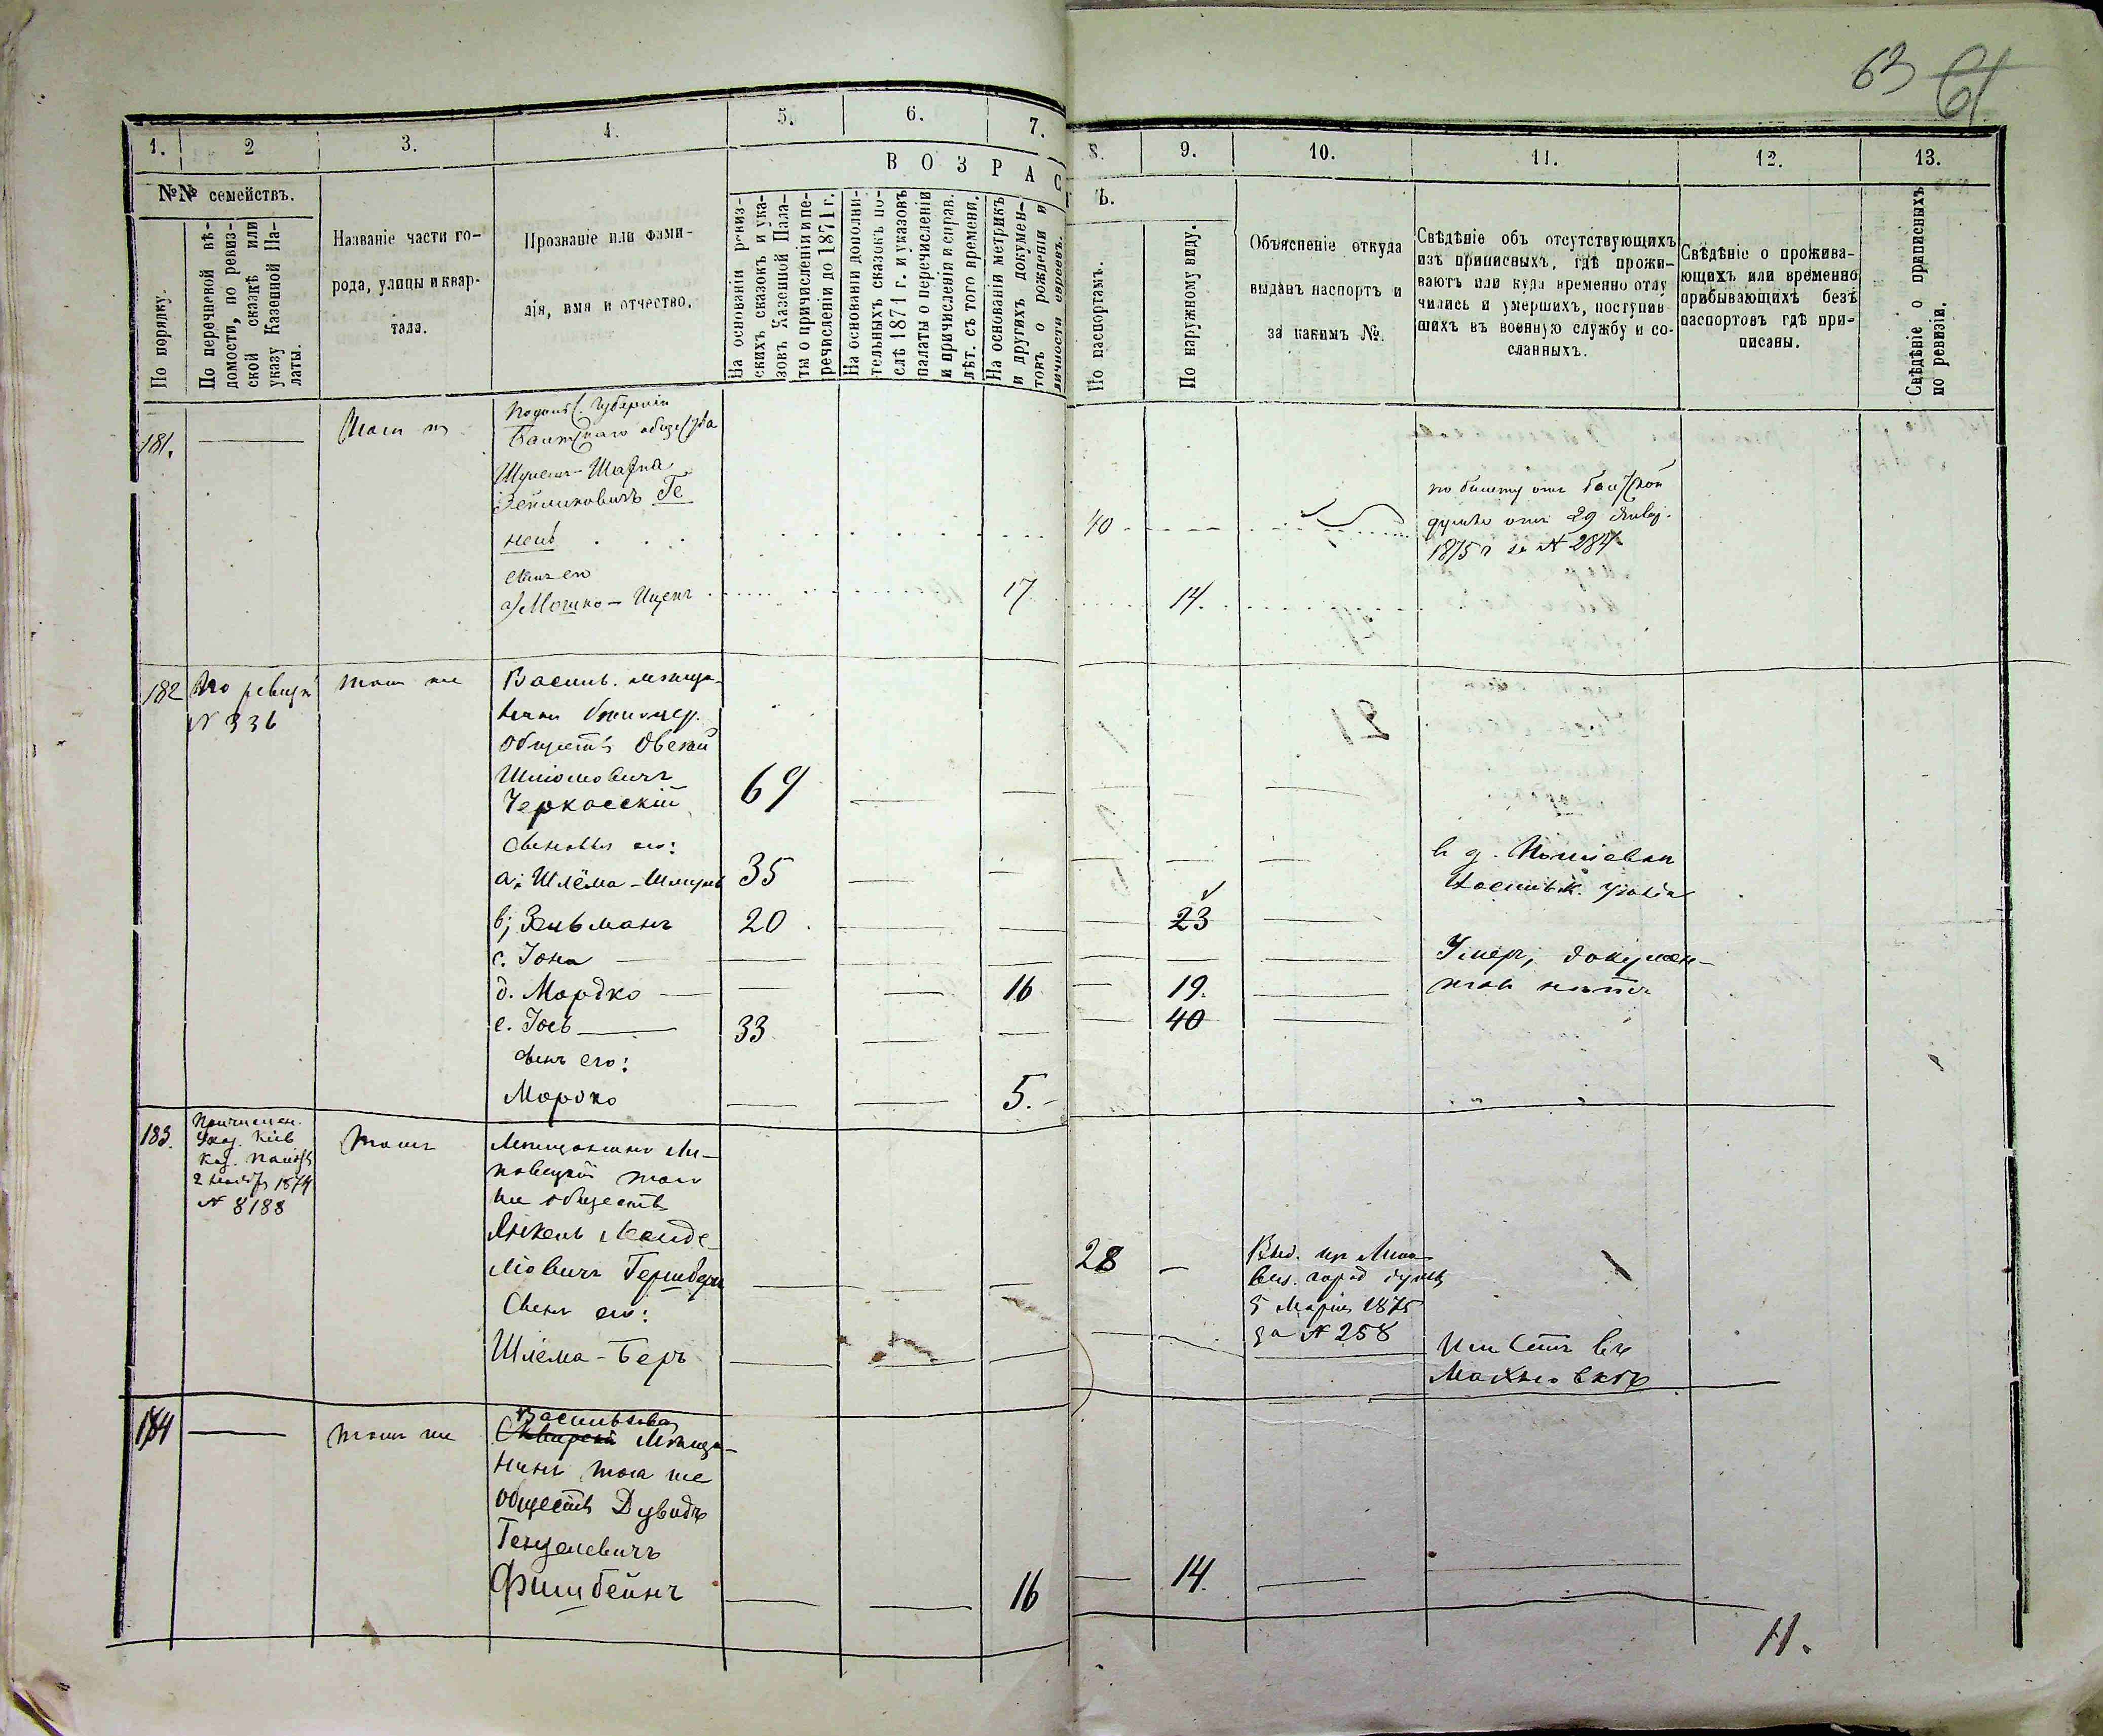 63 61
1. 2 3. 4. 5. 6. 7.
8. 9. 10. 11. 12. 13.
№№ семействъ.
По порядку.
По перечневой вѣ-
домости, по ревиз-
ской сказкѣ или
указу Казенной Па-
латы.
Названіе части го-
рода, улицы и квар-
тала.
Прозваніе или фами-
лія, имя и отчество.
ВОЗРАС
Т Ъ.
На основаніи ревиз-
скихъ сказокъ и ука-
зовъ Казенной Пала-
ты о причисленіи и пе-
речисленіи до 1871 г.
На основаніи дополни-
тельныхъ сказокъ по-
слѣ 1871 г. и указовъ
палаты о перечисленіи
и причисленіи и справ.
лѣт. съ того времени.
На основаніи метрикъ
и другихъ докумен-
товъ о рожденіи и
личности евреевъ.
По паспортамъ.
По наружному виду.
Объясненіе откуда
выданъ паспортъ и
за какимъ №.
Свѣдѣніе объ отсутствующихъ
изъ приписныхъ, гдѣ прожи-
ваютъ или куда временно отлу
чились и умершихъ, поступив-
шихъ въ военную службу и со-
сланныхъ.
Свѣдѣніе о прожива-
ющихъ или временно
прибывающихъ безъ
паспортовъ гдѣ при-
писаны.
Свѣдѣніе о приписныхъ
по ревизіи.
181.
губерніи
общества
40
29
1875 г за № 284
сынъ его
а) Мошко – Ицекъ 17 14.
182 По ревизіи
№ 336
тамъ же
Васильк. мѣща-
Овсей
Шліомовичъ
Черкасскій 69
сыновья его:
а; Шлёма – 35
в г.
уѣзда
в; Зельманъ 20 23
с. Іона
Умеръ, докумен-
товъ нѣтъ
д. Мордко 16 19.
е. Іосъ 33 40
сынъ его:
Мордко 5.
183. Причислен.
Указ. Кіев
Каз. Палаты
2 1874
№ 8188
тамъ
Мѣщанинъ Ли-
повецкій того
же общества
Янкель
Гершберг
28
Выд. из Липо
вец. город думы
5 Марта 1875
за № 258
Сынъ его:
Шлема – Беръ
въ
Махновкѣ
184
тамъ же
Васильков
Сквирскій Мѣща-
нинъ того же
общества Дувидъ
Генделевичъ
Фишбейнъ 16 14.
11.